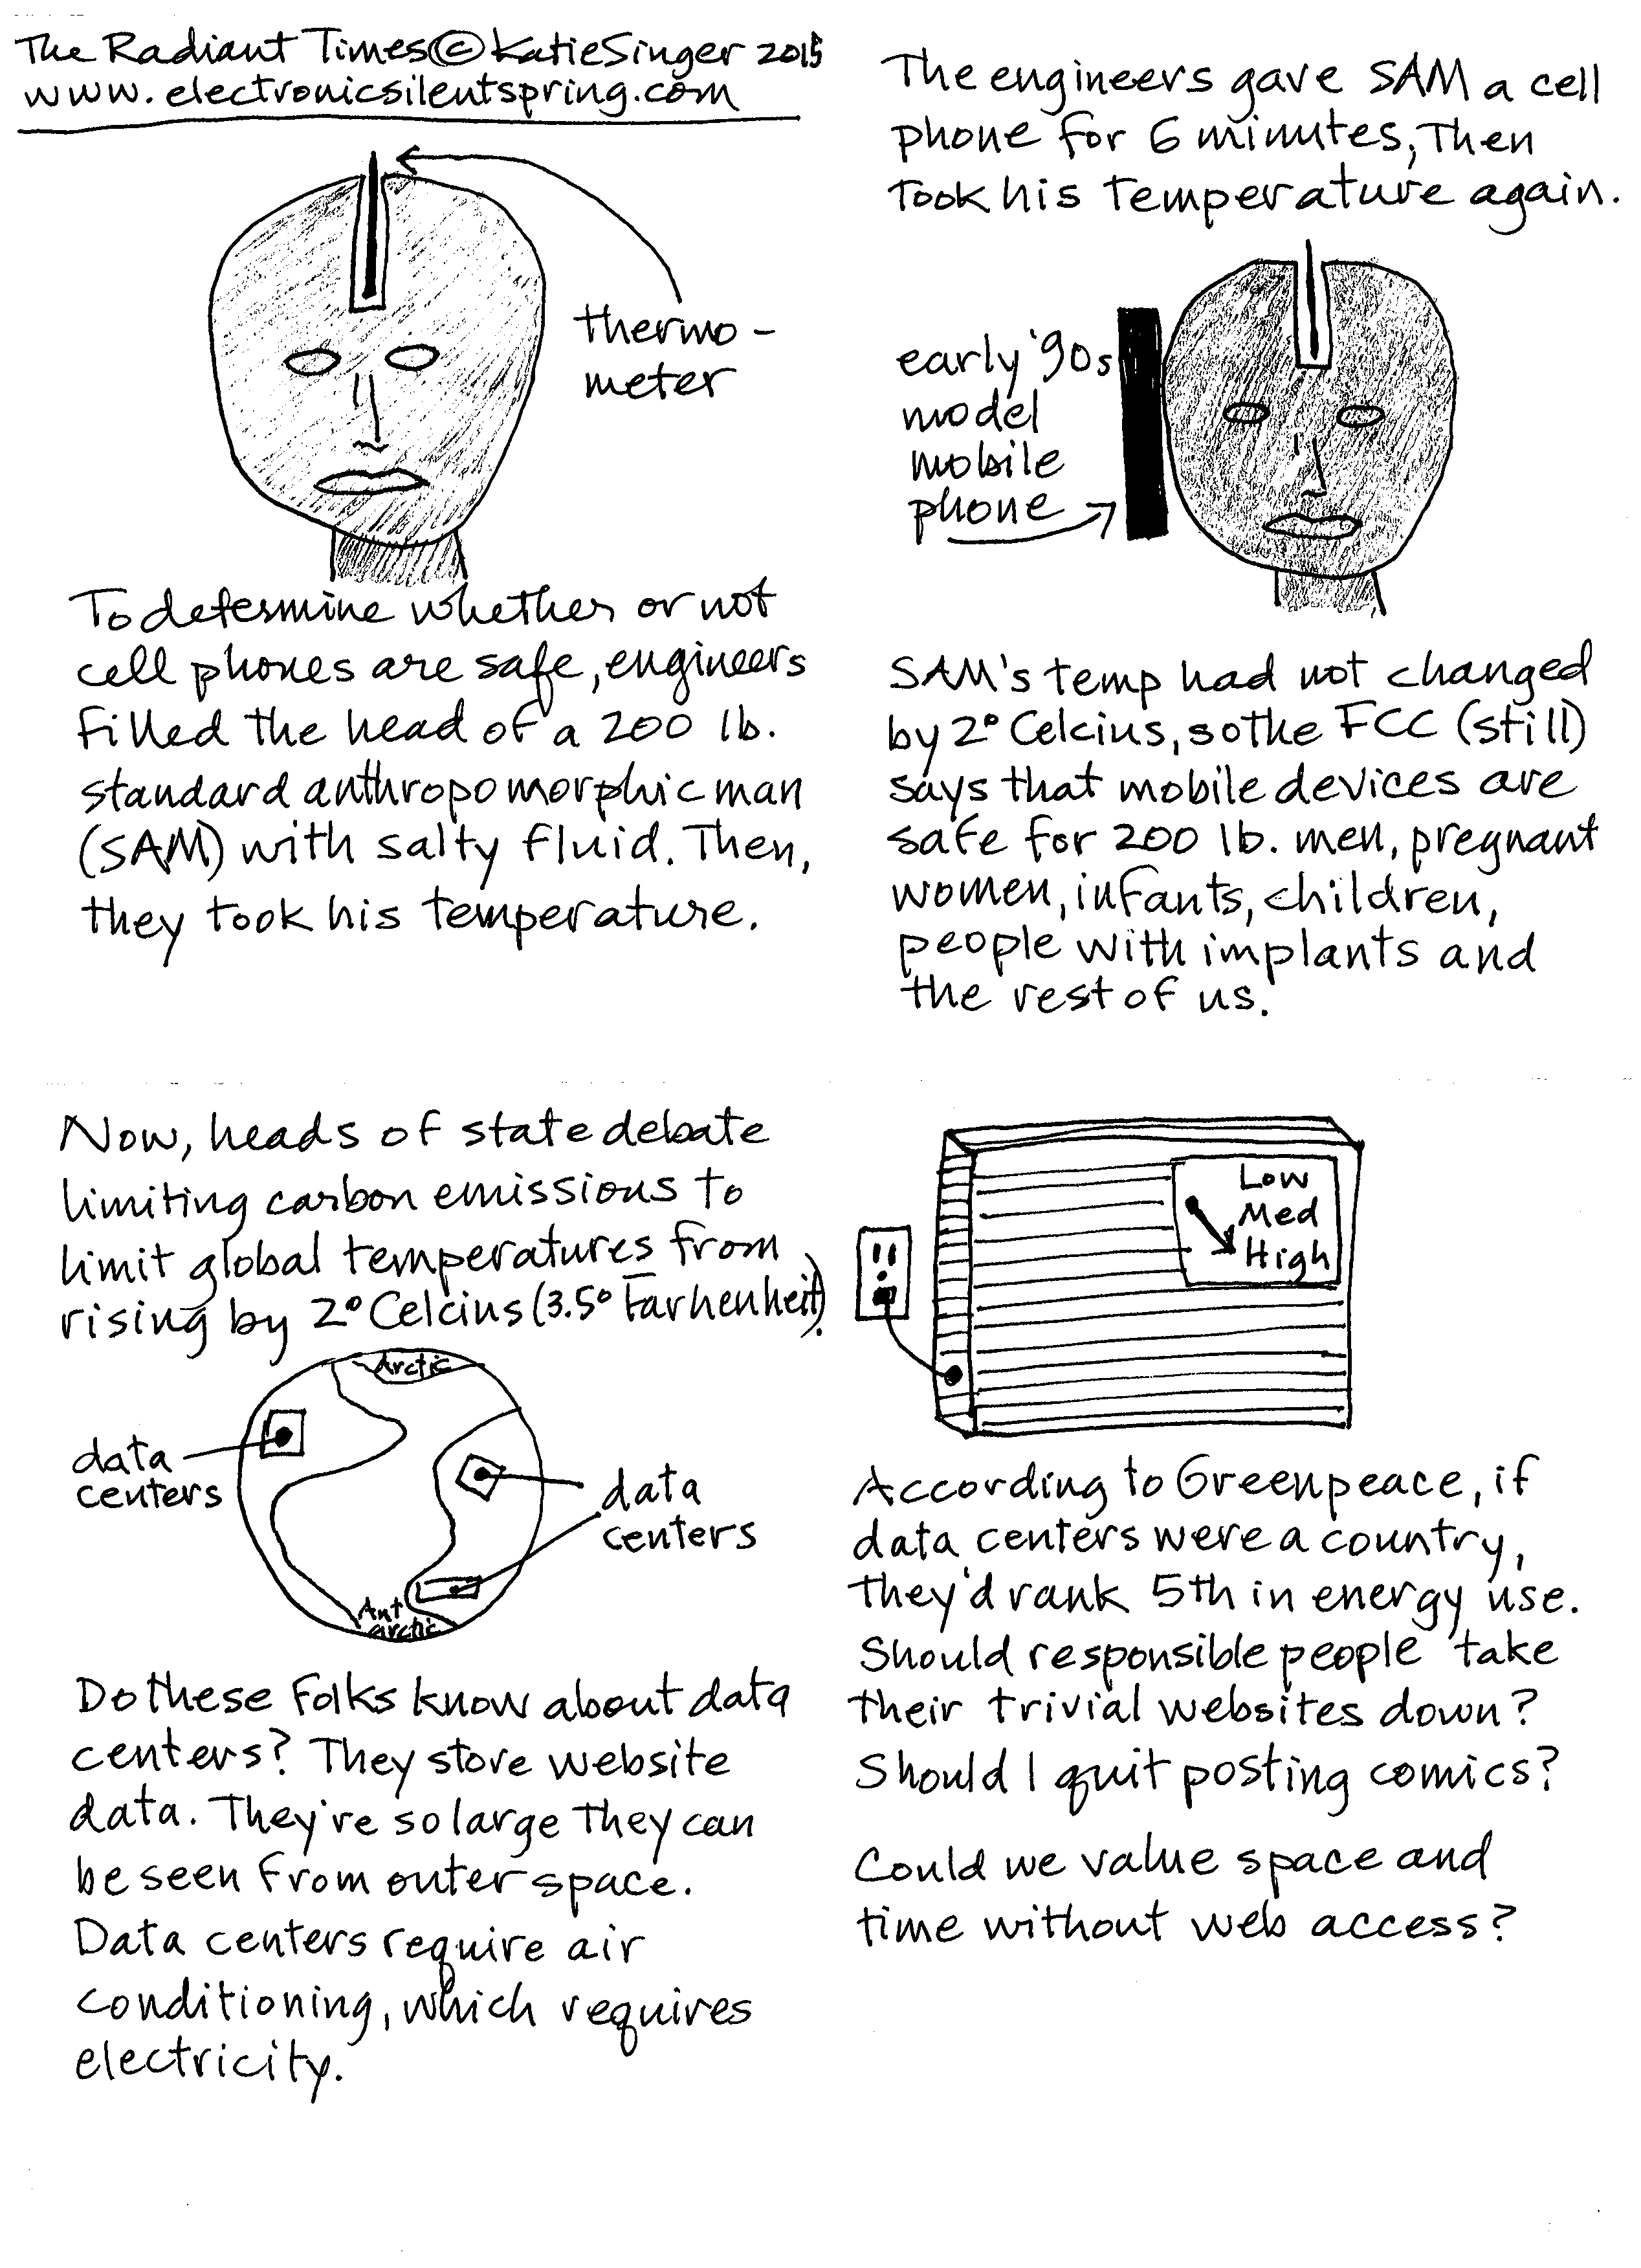 The Radiant Times © Katie Singer 2015
www.electronicsilentspring.com
thermo-
meter
To determine whether or not
cell phones are safe, engineers
filled the head of a 200 lb.
standard anthropomorphic man
(SAM) with salty fluid. Then,
they took his temperature.
The engineers gave SAM a cell
phone for 6 minutes, Then
Took his temperature again.
early '90s
model
mobile
phone
SAM's temp had not changed
by 2° Celcius, so the FCC (still)
says that mobile devices are
safe for 200 lb. men, pregnant
women, infants, children,
people with implants and
the rest of us.
Now, heads of state debate
limiting carbon emissions to
limit global temperatures from
rising by 2° Celcius (3.5° Farhenheit).
Arctic
data
centers
data
centers
Ant
arctic
Do these folks know about data
centers? They store website
data. They're so large they can
be seen from outer space.
Data centers require air
conditioning, which requires
electricity.
Low
Med
High
According to Greenpeace, if
data centers were a country,
they'd rank 5th in energy use.
Should responsible people take
their trivial websites down?
Should I quit posting comics?
Could we value space and
time without web access?